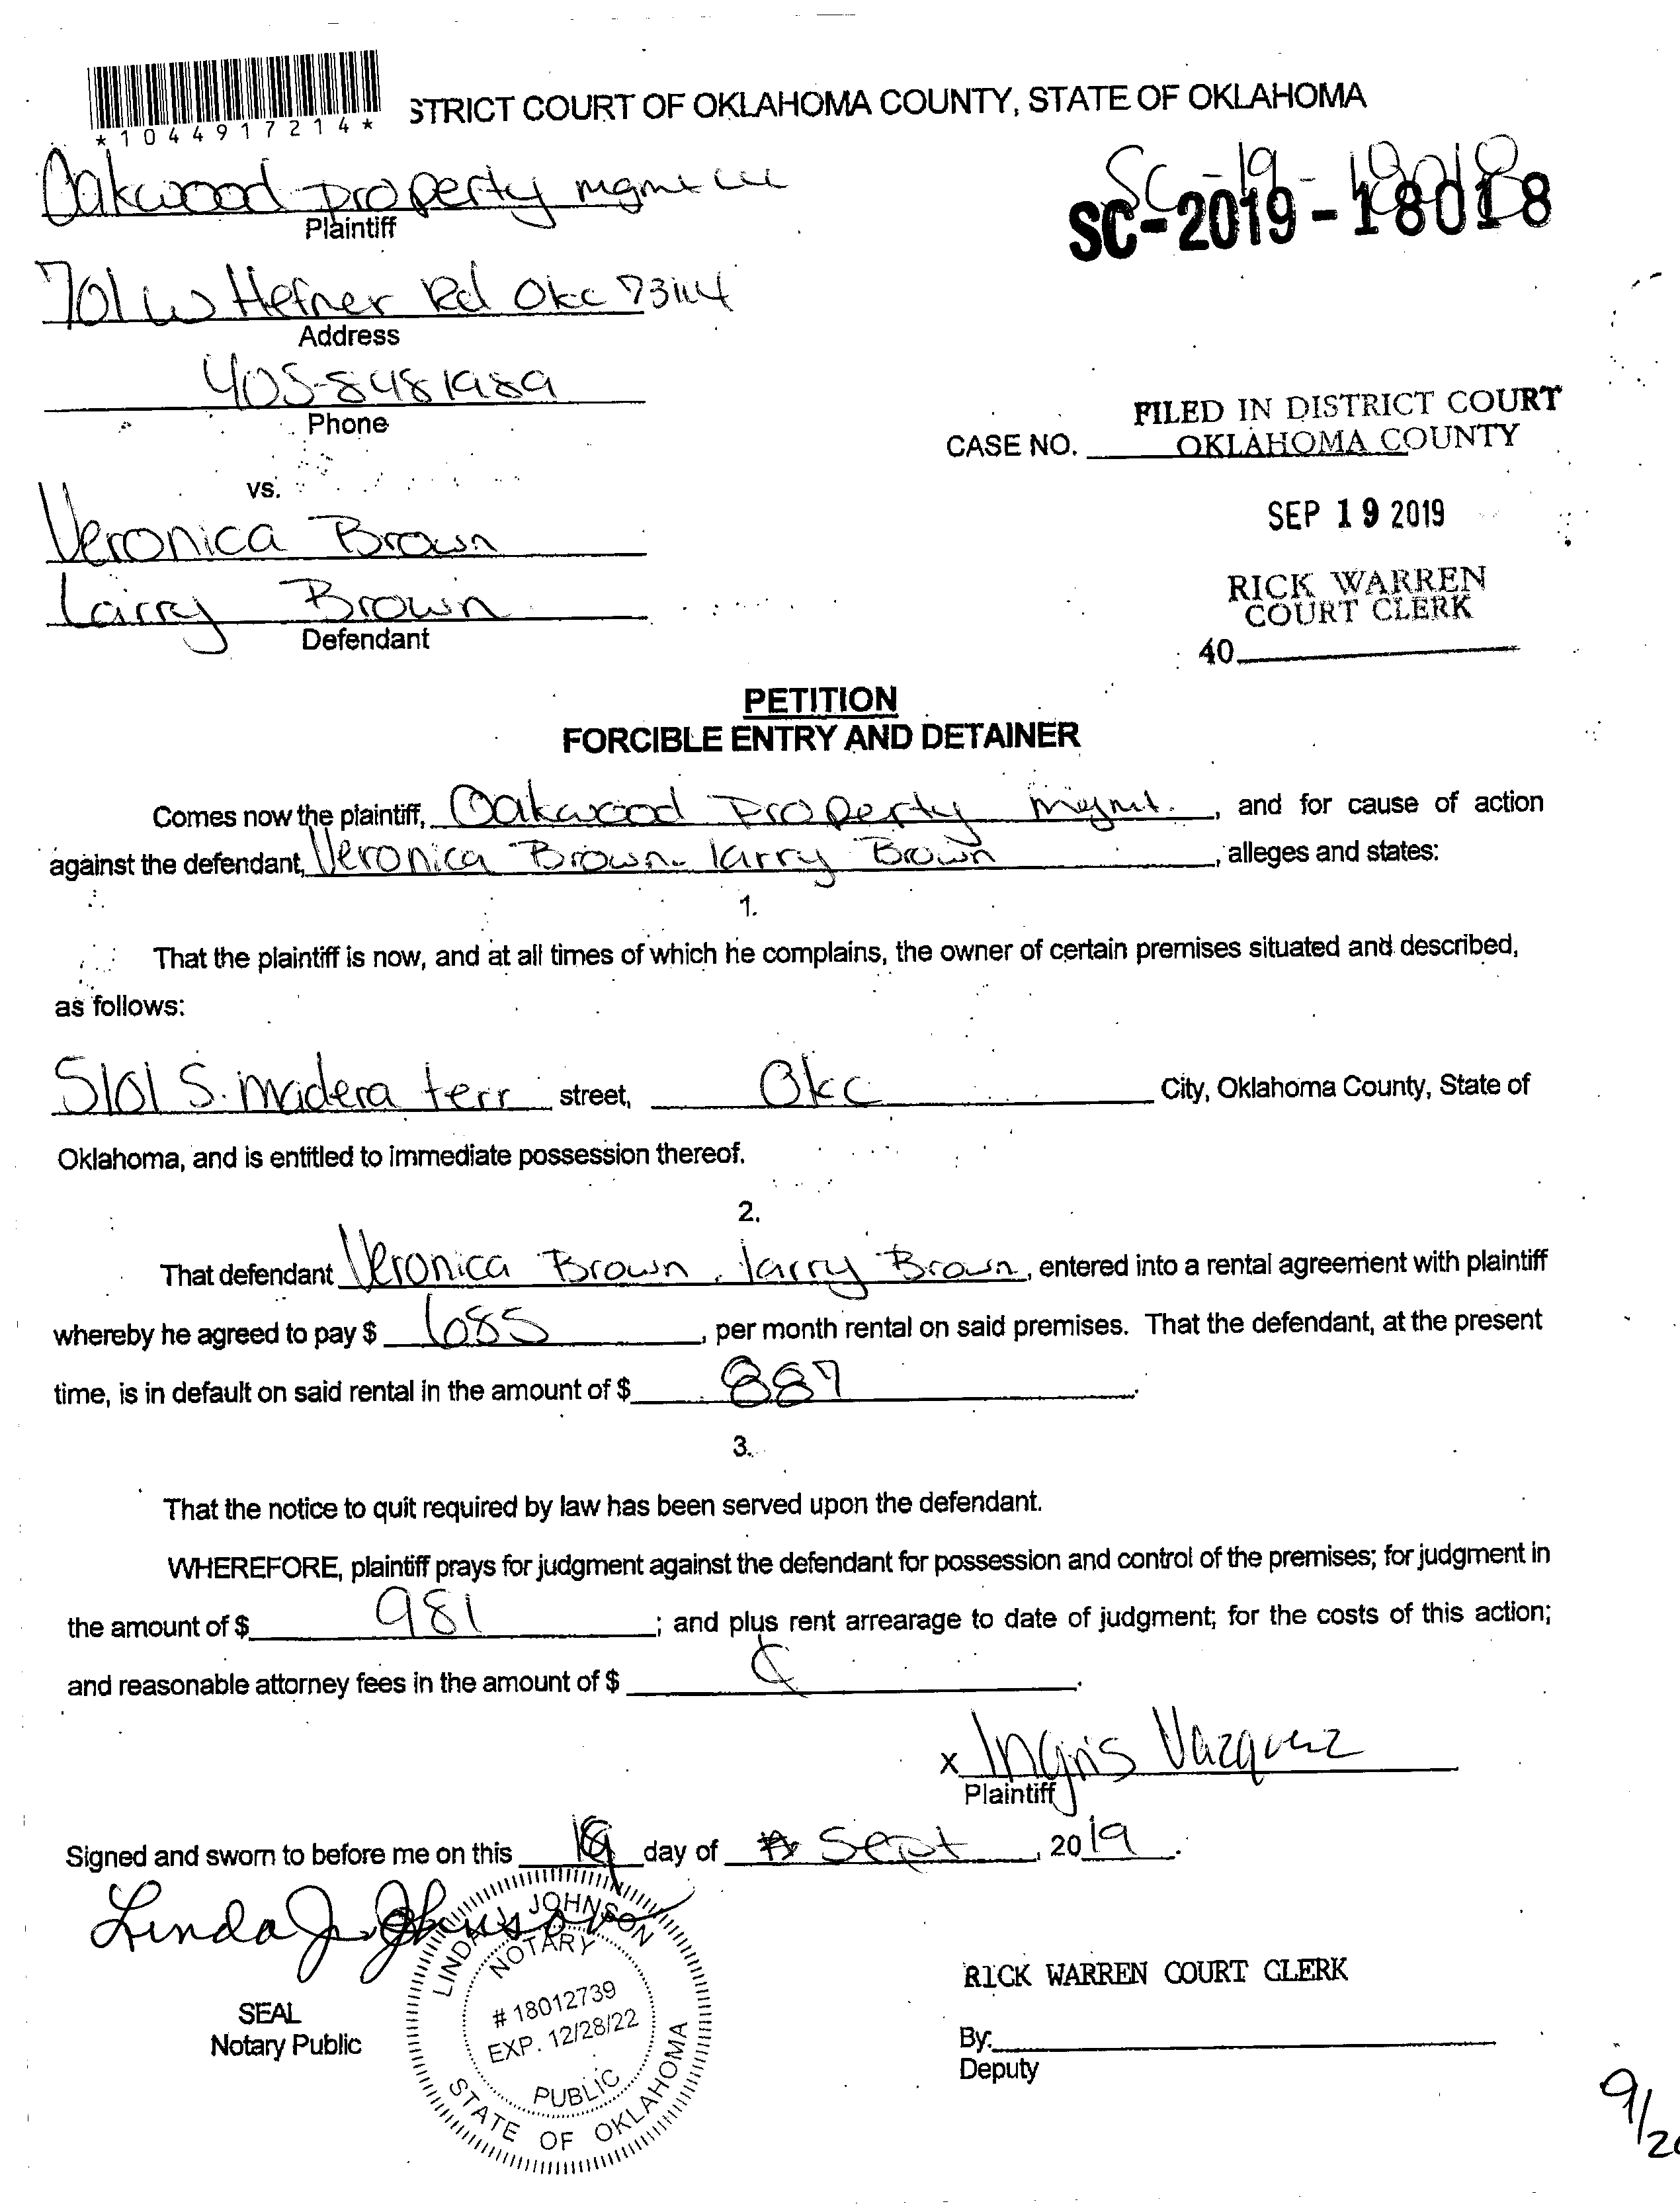 *1044917214*
STRICT COURT OF OKLAHOMA COUNTY, STATE OF OKLAHOMA
Oakwood property mgmt LLC
Plaintiff
SC-19-18018
SC-2019-18018
701 W Hefner Rd Okc 73114
Address
405-8481989
Phone
FILED IN DISTRICT COURT
CASE NO. OKLAHOMA COUNTY
vs.
SEP 19 2019
Veronica Brown
Larry Brown
Defendant
RICK WARREN
COURT CLERK
40
PETITION
FORCIBLE ENTRY AND DETAINER
Comes now the plaintiff, Oakwood Property Mgmt., and for cause of action
against the defendant, Veronica Brown larry Brown, alleges and states:
1.
That the plaintiff is now, and at all times of which he complains, the owner of certain premises situated and described,
as follows:
5101 S. Madera terr street, Okc City, Oklahoma County, State of
Oklahoma, and is entitled to immediate possession thereof.
2.
That defendant Veronica Brown, larry Brown, entered into a rental agreement with plaintiff
whereby he agreed to pay $ 685, per month rental on said premises. That the defendant, at the present
time, is in default on said rental in the amount of $ 887.
3.
That the notice to quit required by law has been served upon the defendant.
WHEREFORE, plaintiff prays for judgment against the defendant for possession and control of the premises; for judgment in
the amount of $ 981; and plus rent arrearage to date of judgment; for the costs of this action;
and reasonable attorney fees in the amount of $
x Ingris Vazquez
Plaintiff
Signed and sworn to before me on this 19 day of Sept, 2019.
Linda J. Johnson
LINDA J JOHNSON
NOTARY
# 18012739
EXP. 12/28/22
PUBLIC
STATE OF OKLAHOMA
SEAL
Notary Public
RICK WARREN COURT CLERK
By:
Deputy